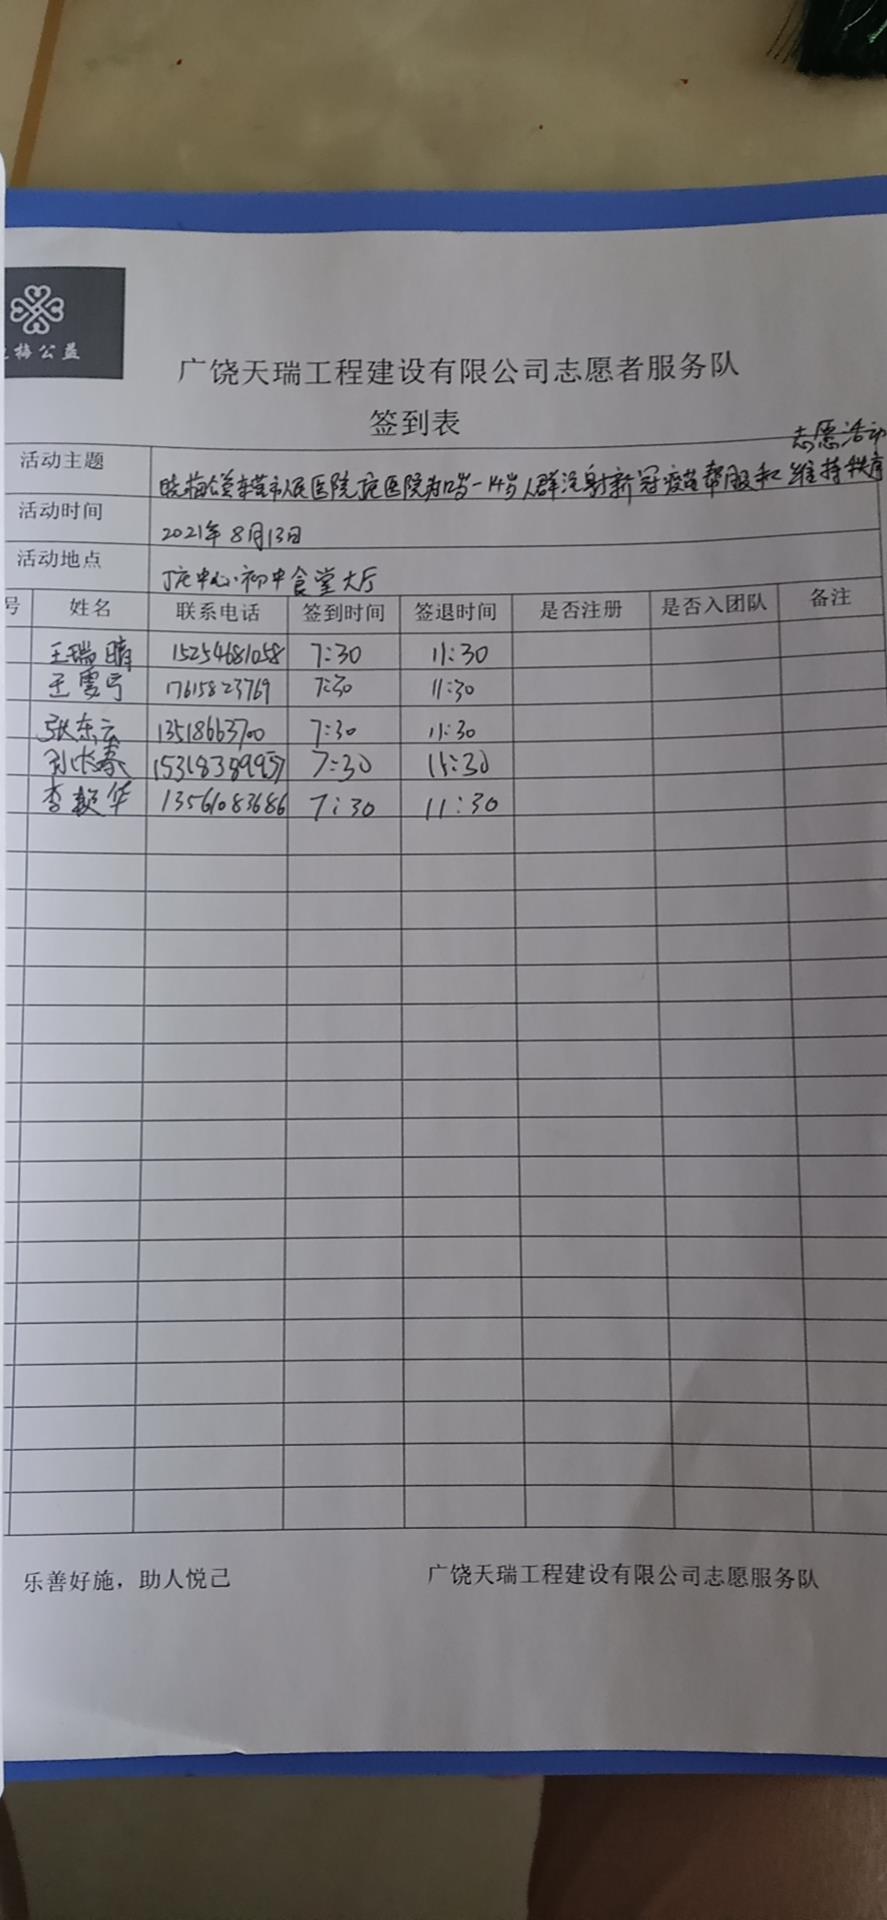 梅公益
广饶天瑞工程建设有限公司志愿者服务队
签到表
志愿活动
活动主题 晓梅公益东营市人民医院 医院为12岁-14岁人群注射新冠疫苗帮服和维持秩序
活动时间 2021年8月13日
活动地点 丁庄中心初中食堂大厅
号 姓名 联系电话 签到时间 签退时间 是否注册 是否入团队 备注
王瑞晴 15254681058 7:30 11:30
王雯宁 17615823769 7:30 11:30
张东云 13518663700 7:30 11:30
孙长春 15318389957 7:30 11:30
李毅华 13561083686 7:30 11:30
乐善好施，助人悦己 广饶天瑞工程建设有限公司志愿服务队